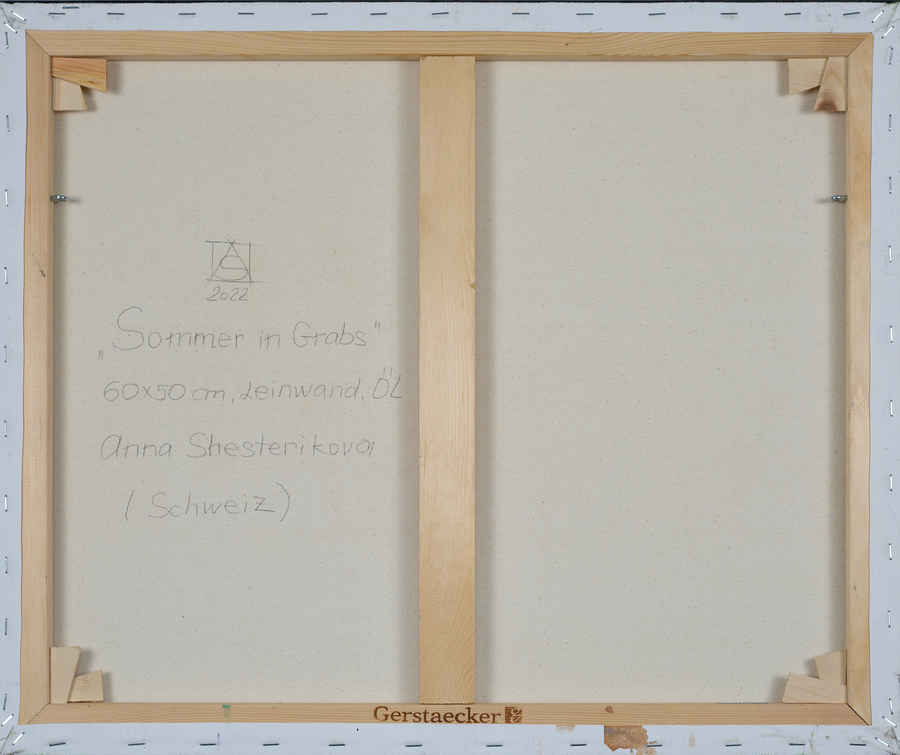 2022
„Sommer in Grabs"
60x50 cm, Leinwand, ÖL
Anna Shesterikova
(Schweiz)
Gerstaecker